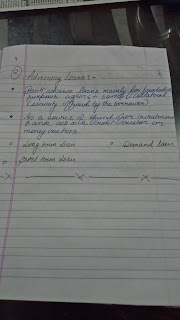 ② Advancing Loans :-
• Bank advance loans mainly for productive
purpose against some (Collateral
(security offered by the borrower)
• As a source of fund for investment
Bank act as a credit creator or
money creators
→ Long term loan → Demand loan
→ Short term loan